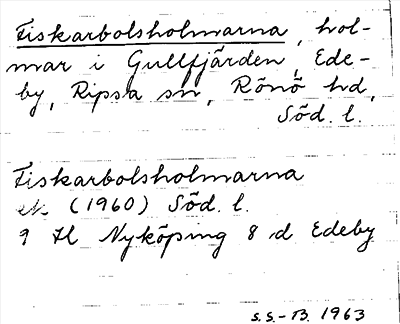 Fiskarbolsholmarna, hol-
mar i Gullfjärden, Ede-
by, Ripsa sn, Rönö hd,
Söd. l.
Fiskarbolsholmarna
ek (1960) Söd. l.
9 H Nyköping 8 d Edeby
S.S.-B. 1963